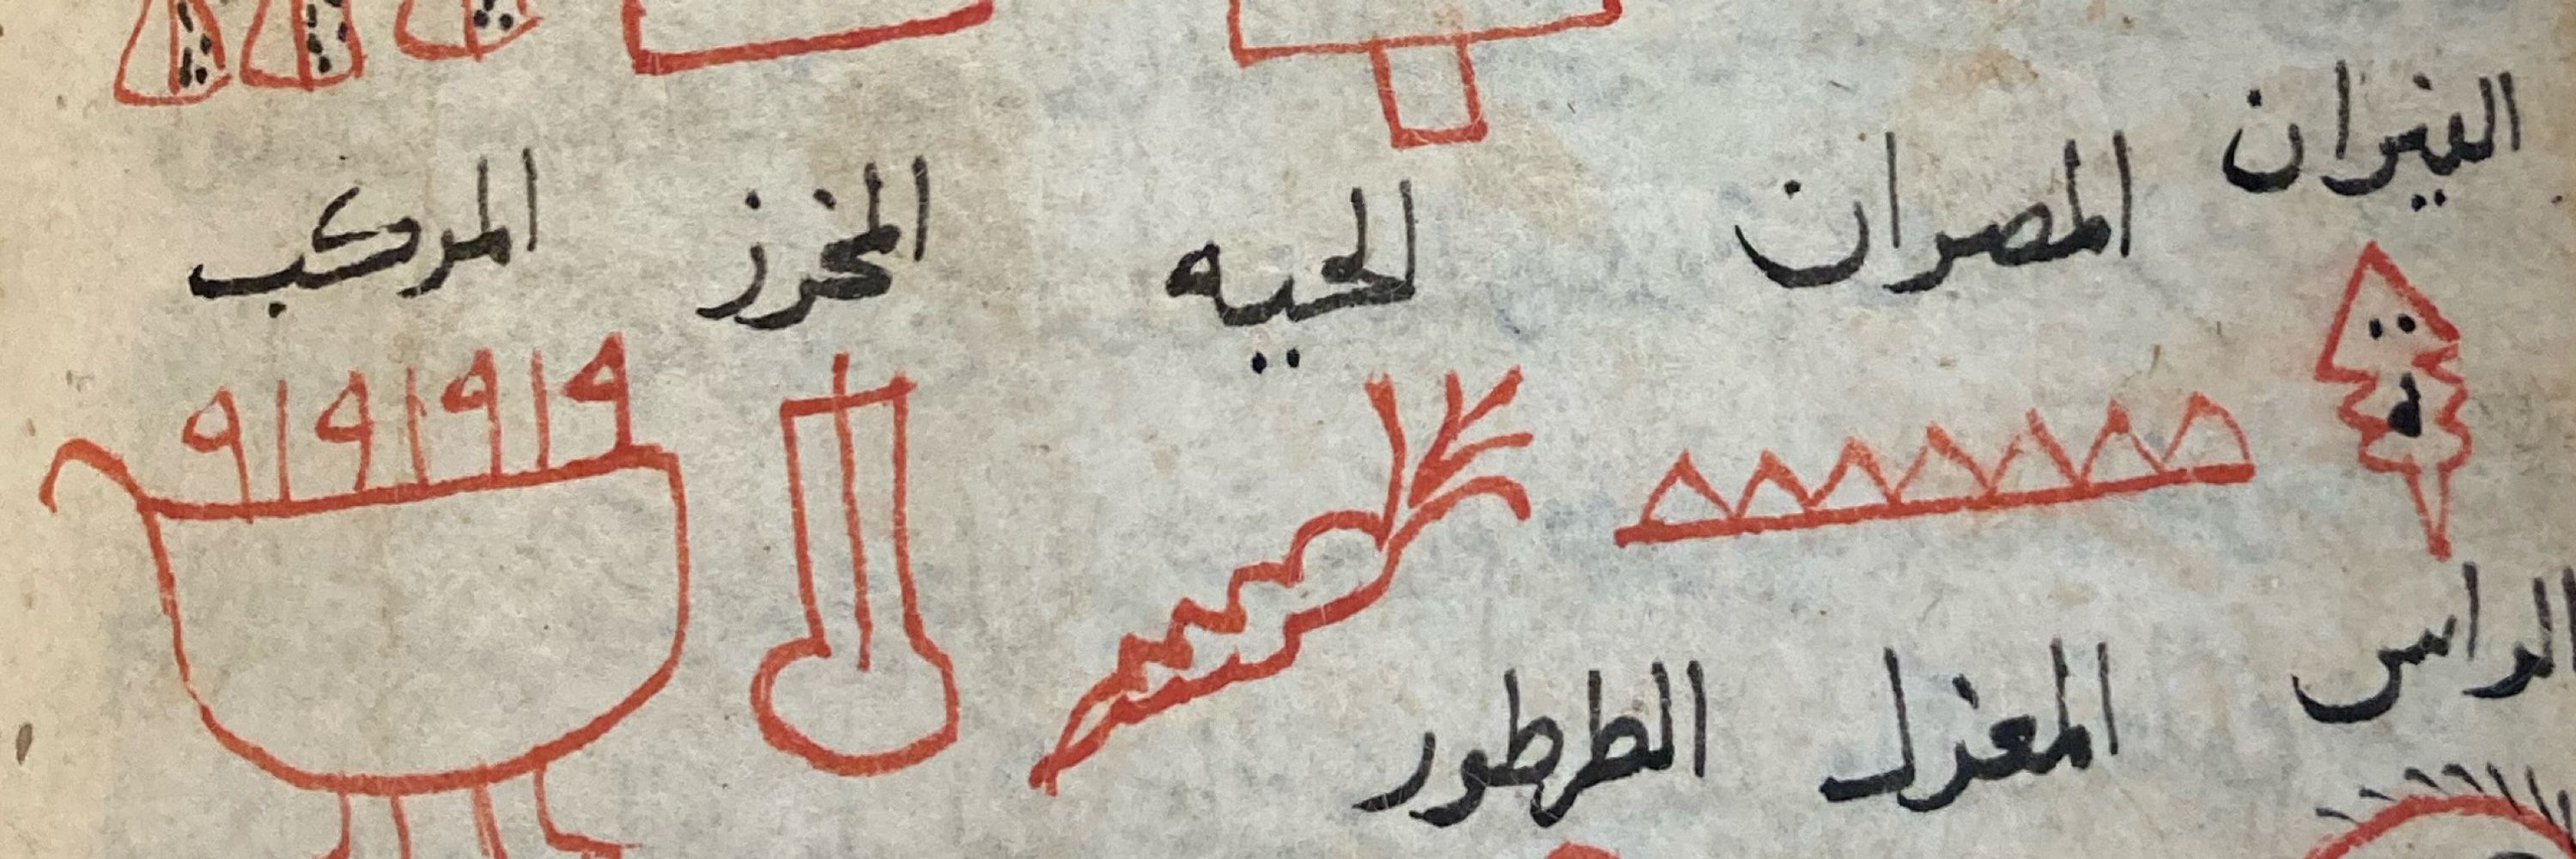 النيران
المصران
الحيه
المخرز
المركب
الراس
المغزل
الطرطور